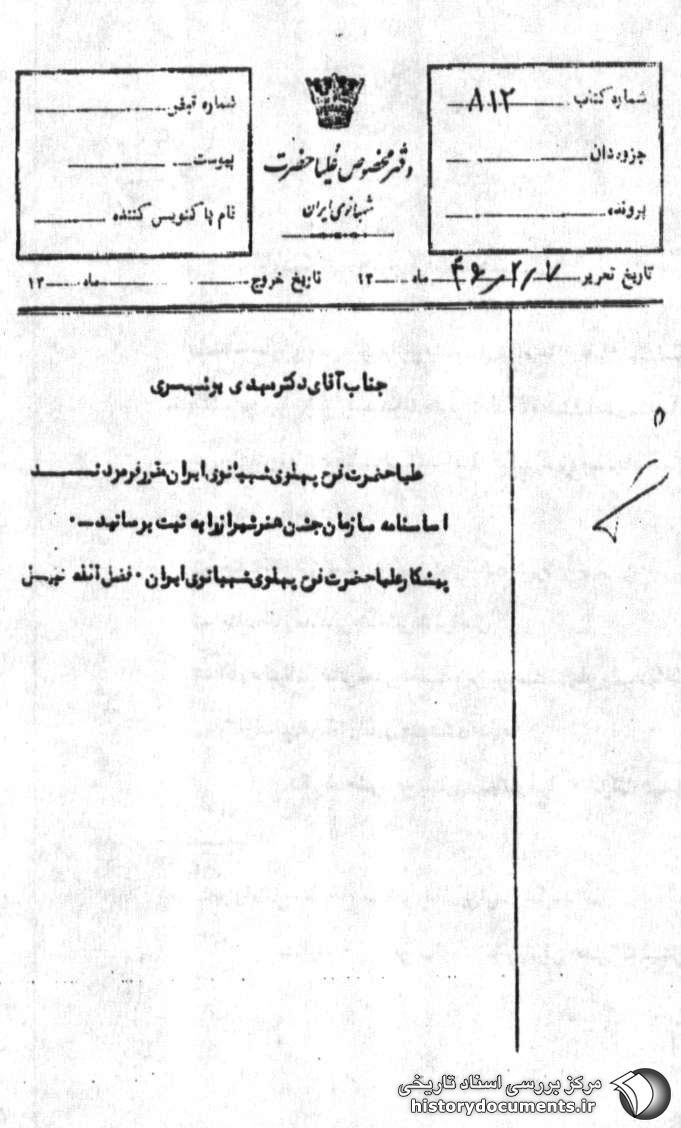 شماره کتاب ۸۱۲
جزوه‌دان
پرونده
دفتر مخصوص علیاحضرت
شهبانوی ایران
شماره قبض
پیوست
نام پاکنویس کننده
تاریخ تحریر ۴۶/۲/۷ ماه ۱۳
تاریخ خروج ماه ۱۳
جناب آقای دکتر مهدی بوشهری
علیاحضرت فرح پهلوی شهبانوی ایران مقرر فرمودند
اساسنامه سازمان جشن هنر شیراز را به ثبت برسانید.
پیشکار علیاحضرت فرح پهلوی شهبانوی ایران. فضل‌الله نبیل
مرکز بررسی اسناد تاریخی
historydocuments.ir